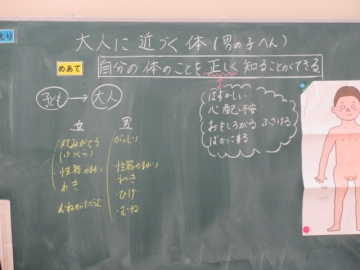 大人に近づく体(男の子へん)
めあて
自分の体のことを正しく知ることができる
子ども→大人
はずかしい
心配・不安
おもしろがる ふざける
ばかにする
女
丸みがでる
・性器のまわり
・わき
むねがふくらむ
男
がっしり
・性器のまわり
・わき
・ひげ
・むね